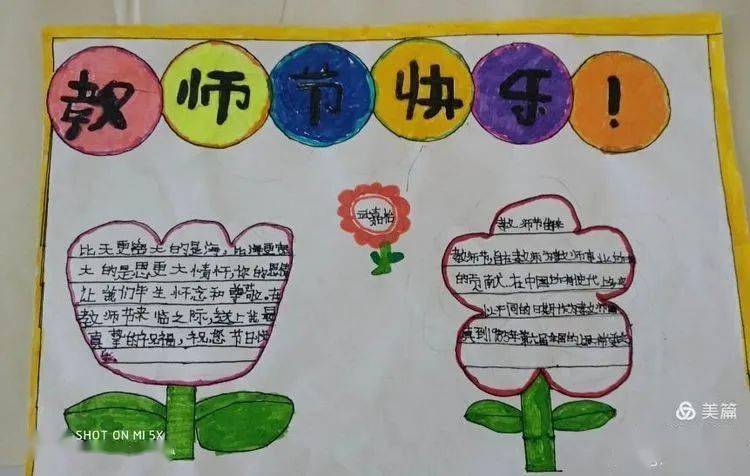 教师节快乐！
武嘉怡
比天更宽大的是海，比海更宽
大的是恩更大情怀，您的恩情
让我们毕生怀念和尊敬。在
教师节来临之际，送上我最
真挚的祝福，祝您节日快
乐。
教师节由来
教师节，旨在教师为教师事业
的贡献，在中国
以不同的日期作为教师节
直到1985年第六届全国
SHOT ON MI 5X
美篇